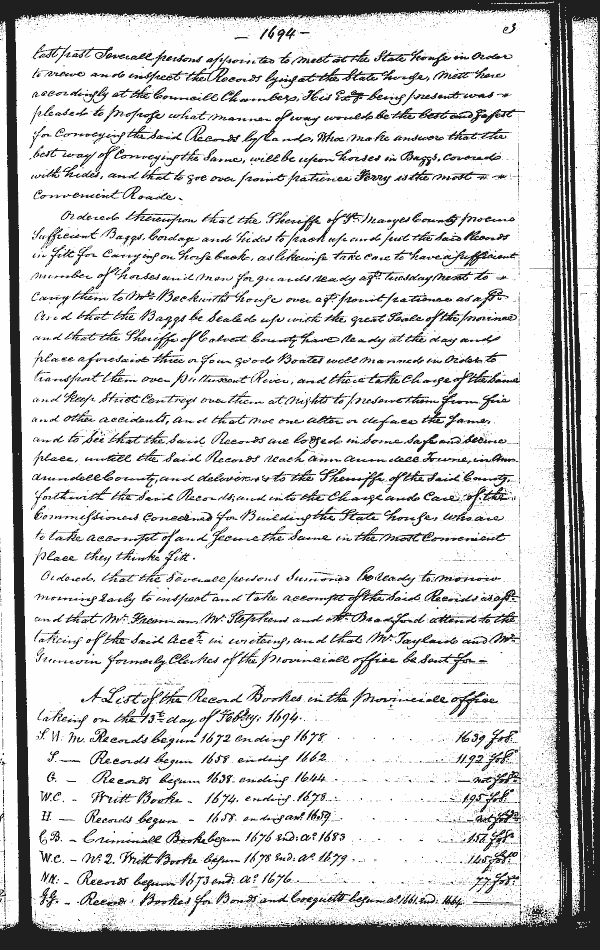 — 1694 —
3
last past Severall persons appointed to meet at the State house in Order
to veiwe and inspect the Records lying at the State house, Mett here
accordingly at the Councill Chambers, His Exꝯ being present was
pleased to propose what manner of way would be the best and safest
for Conveying the said Records by Lands, Who make answere that the
best way of Conveying the Same, will be upon horses in Baggs, Covered
with hides, and that to goe over point patience Ferry is the most
Convenient Roade.
Ordered thereupon that the Sheriffe of St. Maryes County procure
Sufficient Baggs, Cordage and hides to pack up and put the said Records
in fitt for Carrying on horse back, as likewise take care to have a sufficient
number of horses and men for guards ready agt. tuesday next to
Carry them to Mr. Beckwiths house over agt. point patience as afd.
And that the Baggs be Sealed up with the great Seale of the province
and that the Sheriffe of Calvert County have ready at the day and
place aforesaid three or four good Boates well manned in Order to
transport them over Puttuxent River, and there take Charge of the same
and keep Strict Centreys over them at Nights to preserve them from fire
and other accidents, and that noe one alter or deface the Same,
and to See that the said Records are lodged in some Safe and Secure
place, untill the Said Records reach ann arundell Towne, in Ann
arundell County, and deliver to the Sheriffe of the said County,
forthwith the said Records, and into the Charge and Care of the
Commissioners Concerned for Building the State house, who are
to take accompt of and Secure the Same in the most Convenient
place they thinke fitt.
Ordered, that the Severall persons Summoned be ready to morrow
morning Early to inspect and take accompt of the said Records as afd.
and that Mr. Freeman, Mr. Stephens and Mr. Bradford attend to the
taking of the said Acct. in writeing, and that Mr. Taylard and Mr.
formerly Clerkes of the Provinciall office be Sent for —
A List of the Record Bookes in the Provinciall office
taken on the 15th day of Febry. 1694.
S. W. M. Records begun 1672 ending 1678 1639 fols.
S. — Records begun 1658 ending 1662 1192 fols.
G. — Records begun 1638 ending 1644 — not fold.
W.C. — Writt Booke — 1674. ending 1678 195 fols.
H — Records begun — 1658. ending ao. 1659 not fold.
C B. — Criminall Booke begun 1676 end: ao. 1683 156 fols.
W.C. — No. 2. Writt Booke begun 1678 end: ao. 1679 145 fols.
NN. — Records begun 1673 end: ao. 1676 77 fols.
— Record Bookes for Bonds and begun ao. 1661 end: 1664